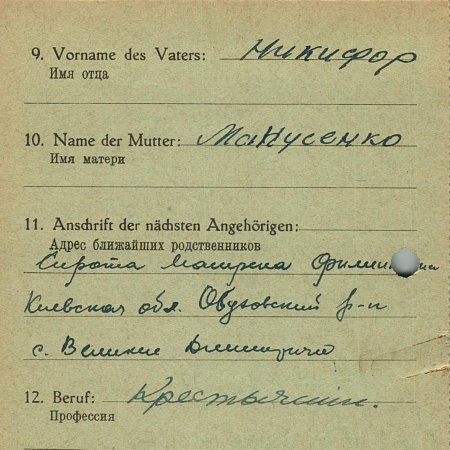 9. Vorname des Vaters: Никифор
Имя отца
10. Name der Mutter: Манусенко
Имя матери
11. Anschrift der nächsten Angehörigen:
Адрес ближайших родственников
Сирота
Киевская обл. Обуховский р-н
с. Великие
12. Beruf: Крестьянин.
Профессия